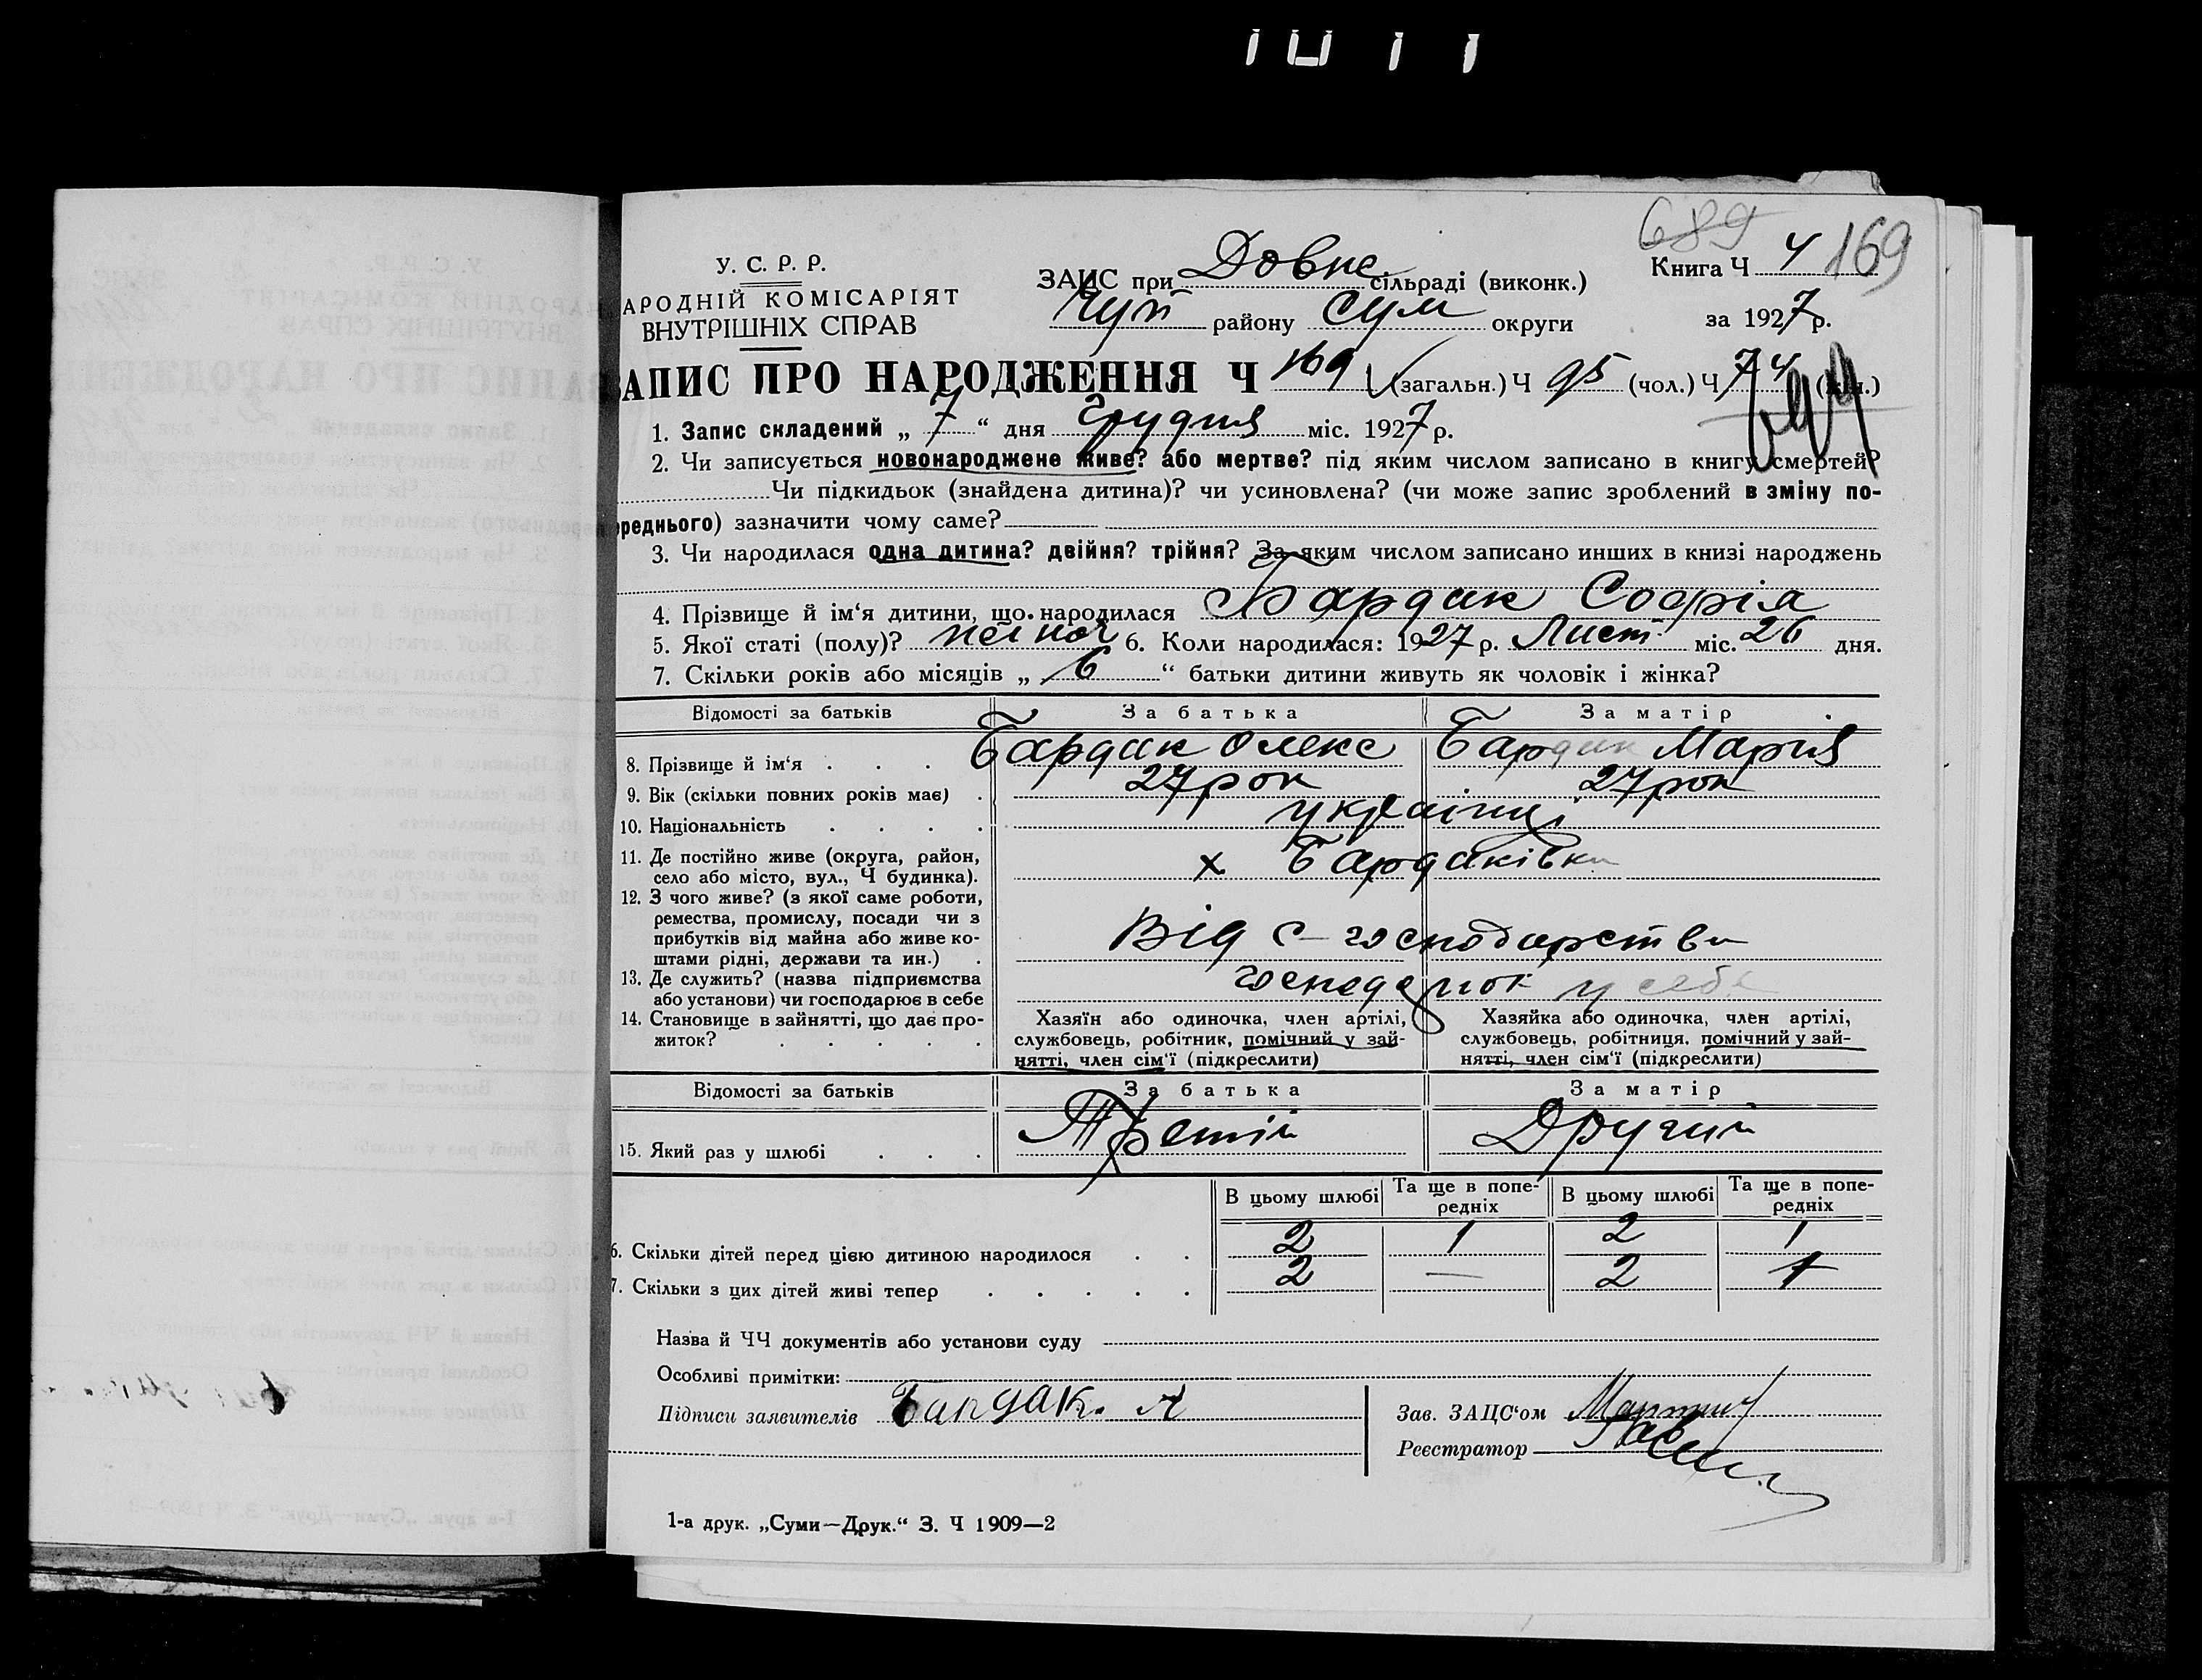 689
У. С. Р. Р.
АРОДНІЙ КОМІСАРІЯТ
ВНУТРІШНІХ СПРАВ
ЗАГС при Довж. сільраді (виконк.)
Книга Ч 4 169
Чуп районy Сум округи
за 1927 р.
ЗАПИС ПРО НАРОДЖЕННЯ Ч 169 (загальн.) Ч 95 (чол.) Ч 74 (жін.)
1. Запис складений „ 7 “ дня Грудня міс. 1927 р.
2. Чи записується новонароджене живе? або мертве? під яким числом записано в книгу смертей?
Чи підкидьок (знайдена дитина)? чи усиновлена? (чи може запис зроблений в зміну по-
ереднього) зазначити чому саме?
3. Чи народилася одна дитина? двійня? трійня? За яким числом записано инших в книзі народжень
4. Прізвище й ім‘я дитини, що народилася Бардак Софія
5. Якої статі (полу)? жіноч 6. Коли народилася: 1927 р. Лист міс. 26 дня.
7. Скільки років або місяців „ 6 “ батьки дитини живуть як чоловік і жінка?
Відомості за батьків За батька За матір
8. Прізвище й ім‘я Бардак Олекс Бардак Мария
9. Вік (скільки повних років має) 27 рок 27 рок
10. Національність українці
11. Де постійно живе (округа, район,
село або місто, вул., Ч будинка). х Бардаківка
12. З чого живе? (з якої саме роботи,
ремества, промислу, посади чи з
прибутків від майна або живе ко-
штами рідні, держави та ин.) Від с-господарства
13. Де служить? (назва підприємства
або установи) чи господарює в себе господарюют у себе
14. Становище в зайнятті, що дає про-
житок?
Хазяїн або одиночка, член артілі,
службовець, робітник, помічний у зай-
нятті, член сім‘ї (підкреслити)
Хазяйка або одиночка, член артілі,
службовець, робітниця, помічний у зай-
нятті, член сім‘ї (підкреслити)
Відомості за батьків За батька За матір
15. Який раз у шлюбі Третій Другий
В цьому шлюбі Та ще в попе-редніх В цьому шлюбі Та ще в попе-редніх
6. Скільки дітей перед цією дитиною народилося 2 1 2 1
7. Скільки з цих дітей живі тепер 2 — 2 1
Назва й ЧЧ документів або установи суду
Особливі примітки:
Підписи заявителів Бардак. А
Зав. ЗАЦС‘ом
Реєстратор
1-а друк. „Суми—Друк.“ З. Ч 1909—2